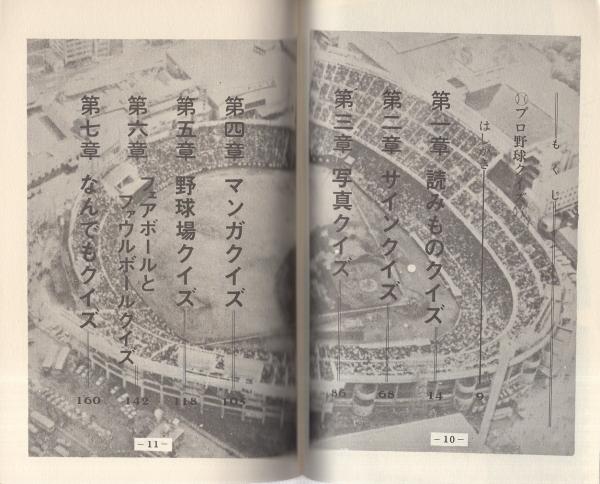 もくじ
プロ野球クイズ
はしがき 9
第一章 読みものクイズ 14
第二章 サインクイズ 68
第三章 写真クイズ 86
-10-
第四章 マンガクイズ 105
第五章 野球場クイズ 118
第六章 フェアボールと
ファウルボールクイズ 142
第七章 なんでもクイズ 160
-11-